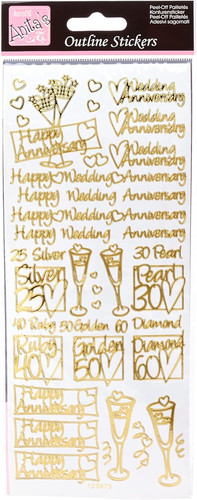 Anita's
Outline Stickers
Peel-Off Pailletés
Konturensticker
Peel-Off Pailletés
Adesivi sagomati
Wedding
Anniversary
Happy
Anniversary
Wedding
Anniversary
Happy Wedding Anniversary
Happy Wedding Anniversary
Happy Wedding Anniversary
Happy Wedding Anniversary
25 Silver
30 Pearl
Silver
25
Pearl
30
40 Ruby 50 Golden 60 Diamond
Ruby
40
Golden
50
Diamond
60
Happy
Anniversary
Happy
Anniversary
Happy
Anniversary